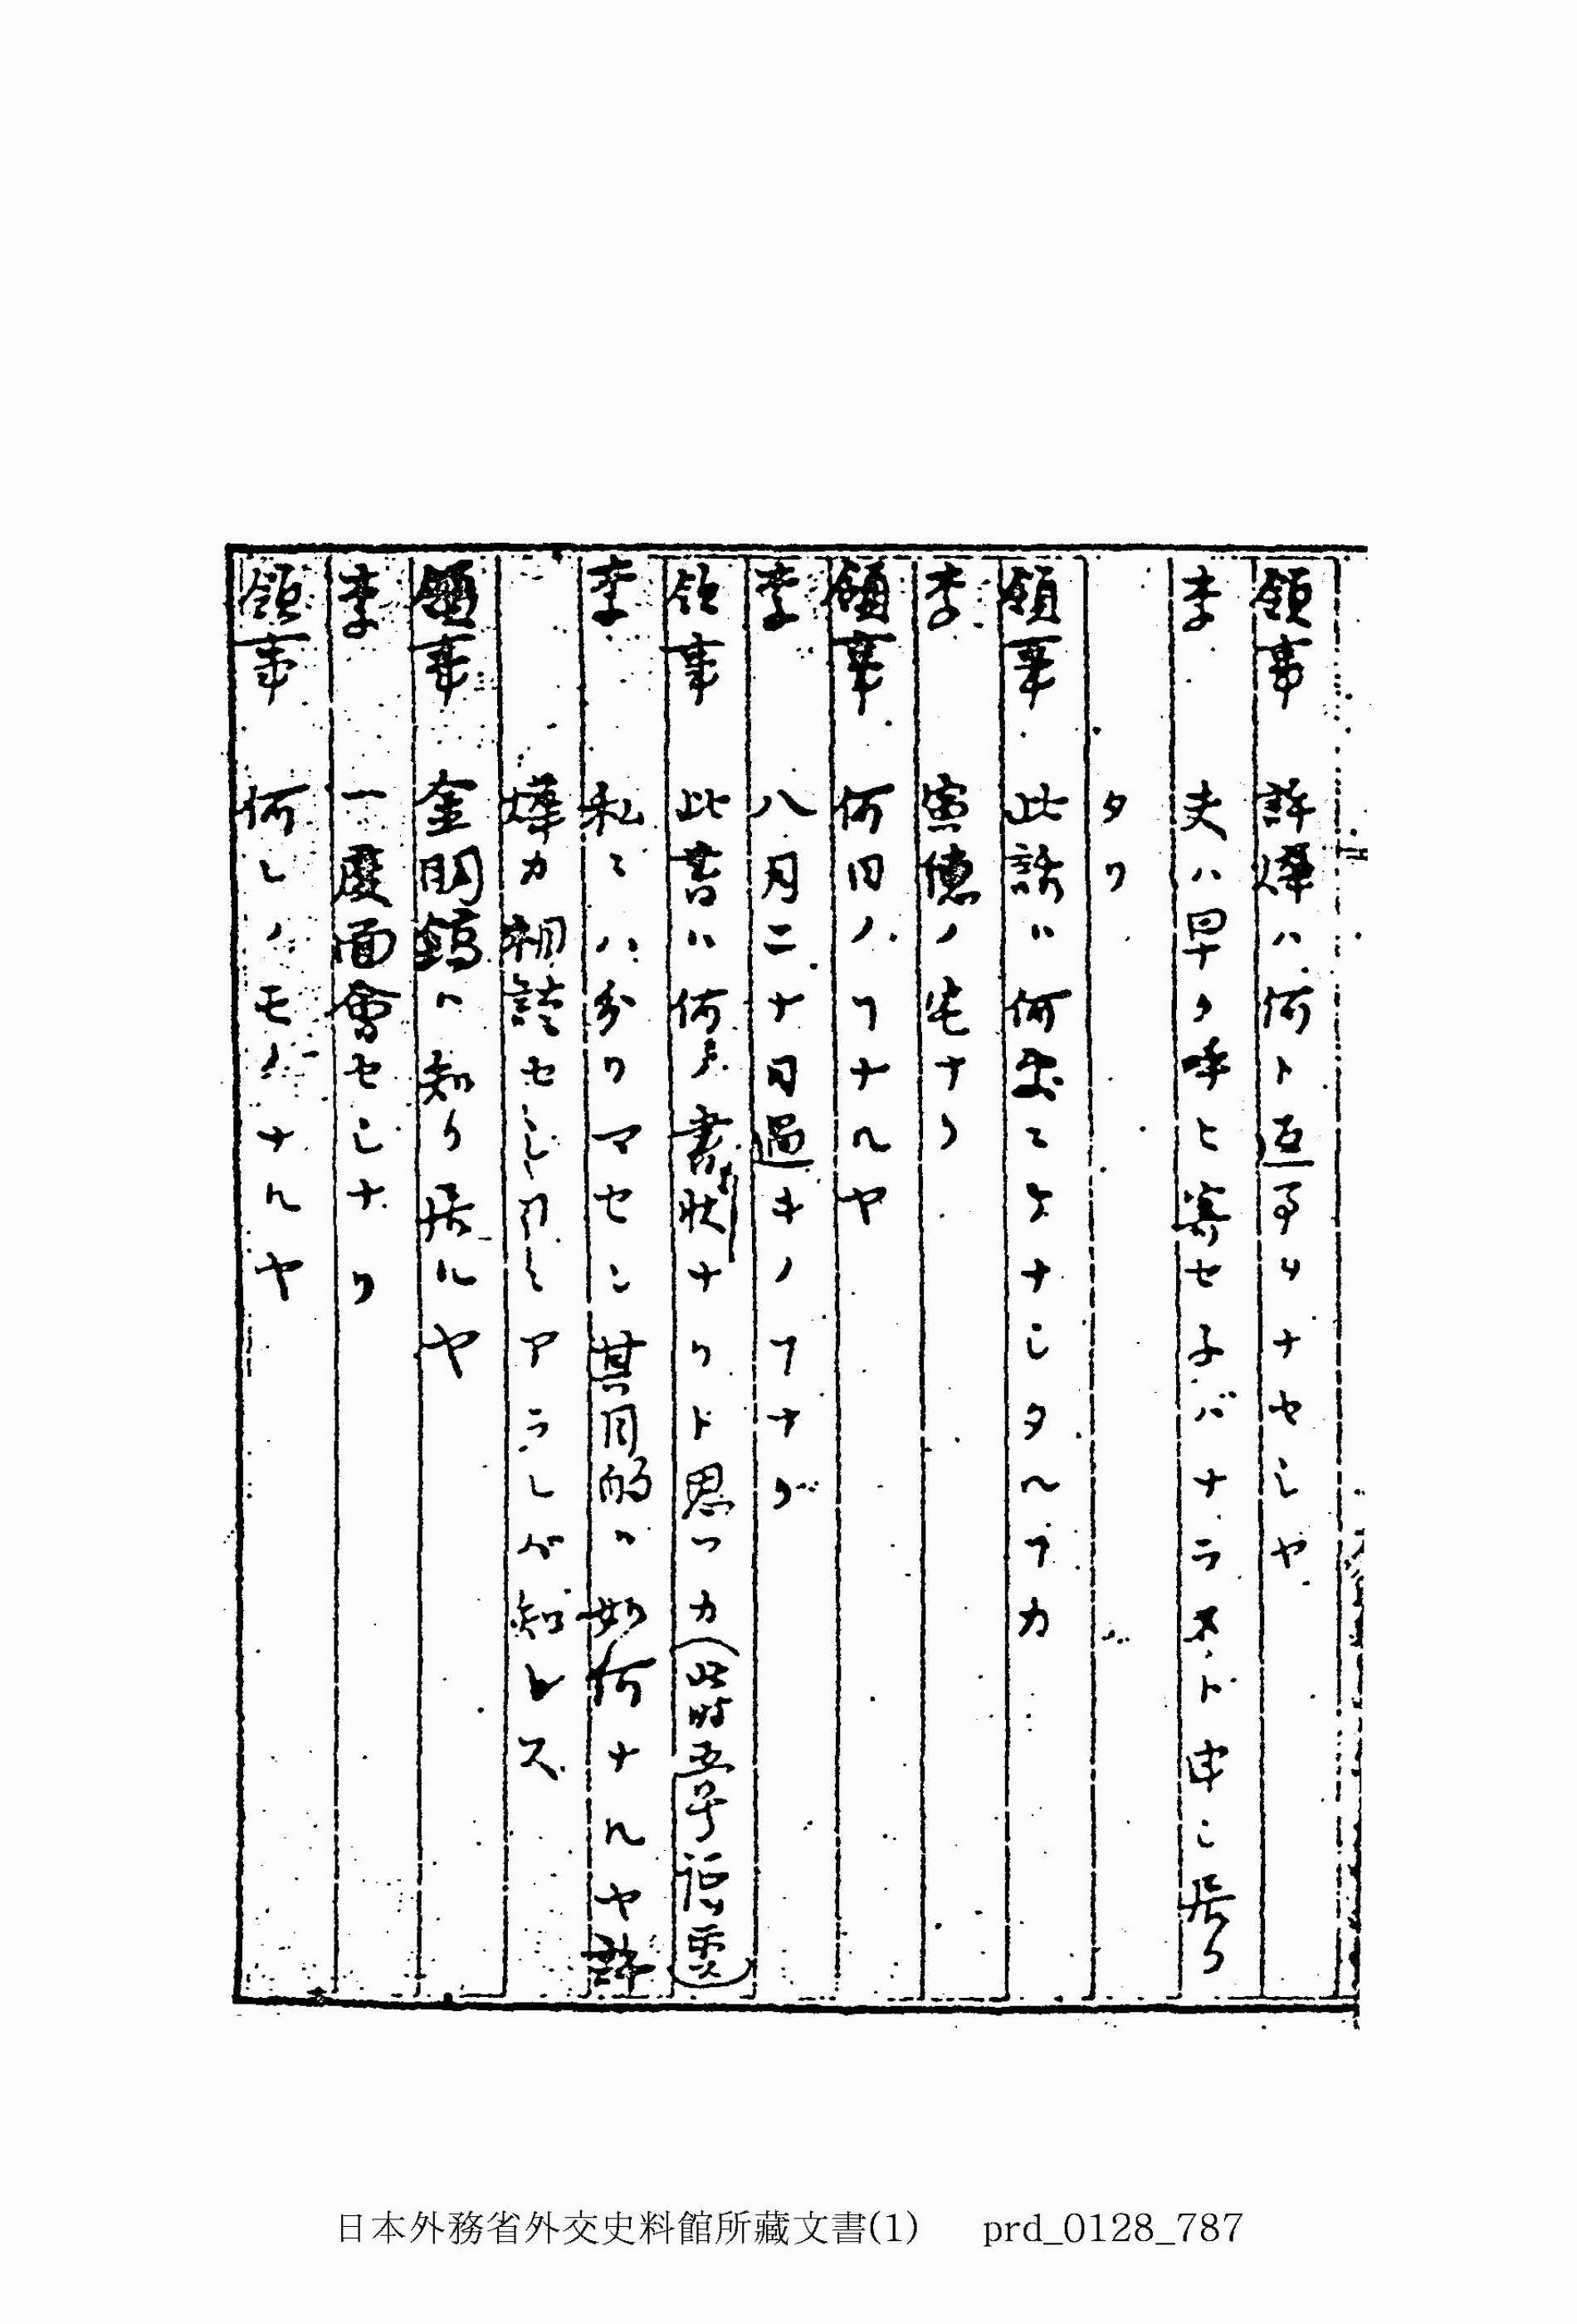 領事 許燁ハ何ト返事ヲナセシヤ
李 夫ハ早ク呼ヒ寄セ子バナラヌト申シ居リ
タリ
領事 此話ハ何処ニテナシタルヿカ
李 寅徳ノ宅ナリ
領事 何日ノヿナルヤ
李 八月二十日過キノヿナリ
領事 此書ハ何ノ書状ナリト思フカ(此時
李 私ニハ分リマセン其目的ハ如何ナルヤ許
燁カ相談セシ アラシカ知レス
領事 金明鎬ハ知リ居ルヤ
李 一度面會セシナリ
領事 何レノモノナルヤ
日本外務省外交史料館所藏文書(1) prd_0128_787